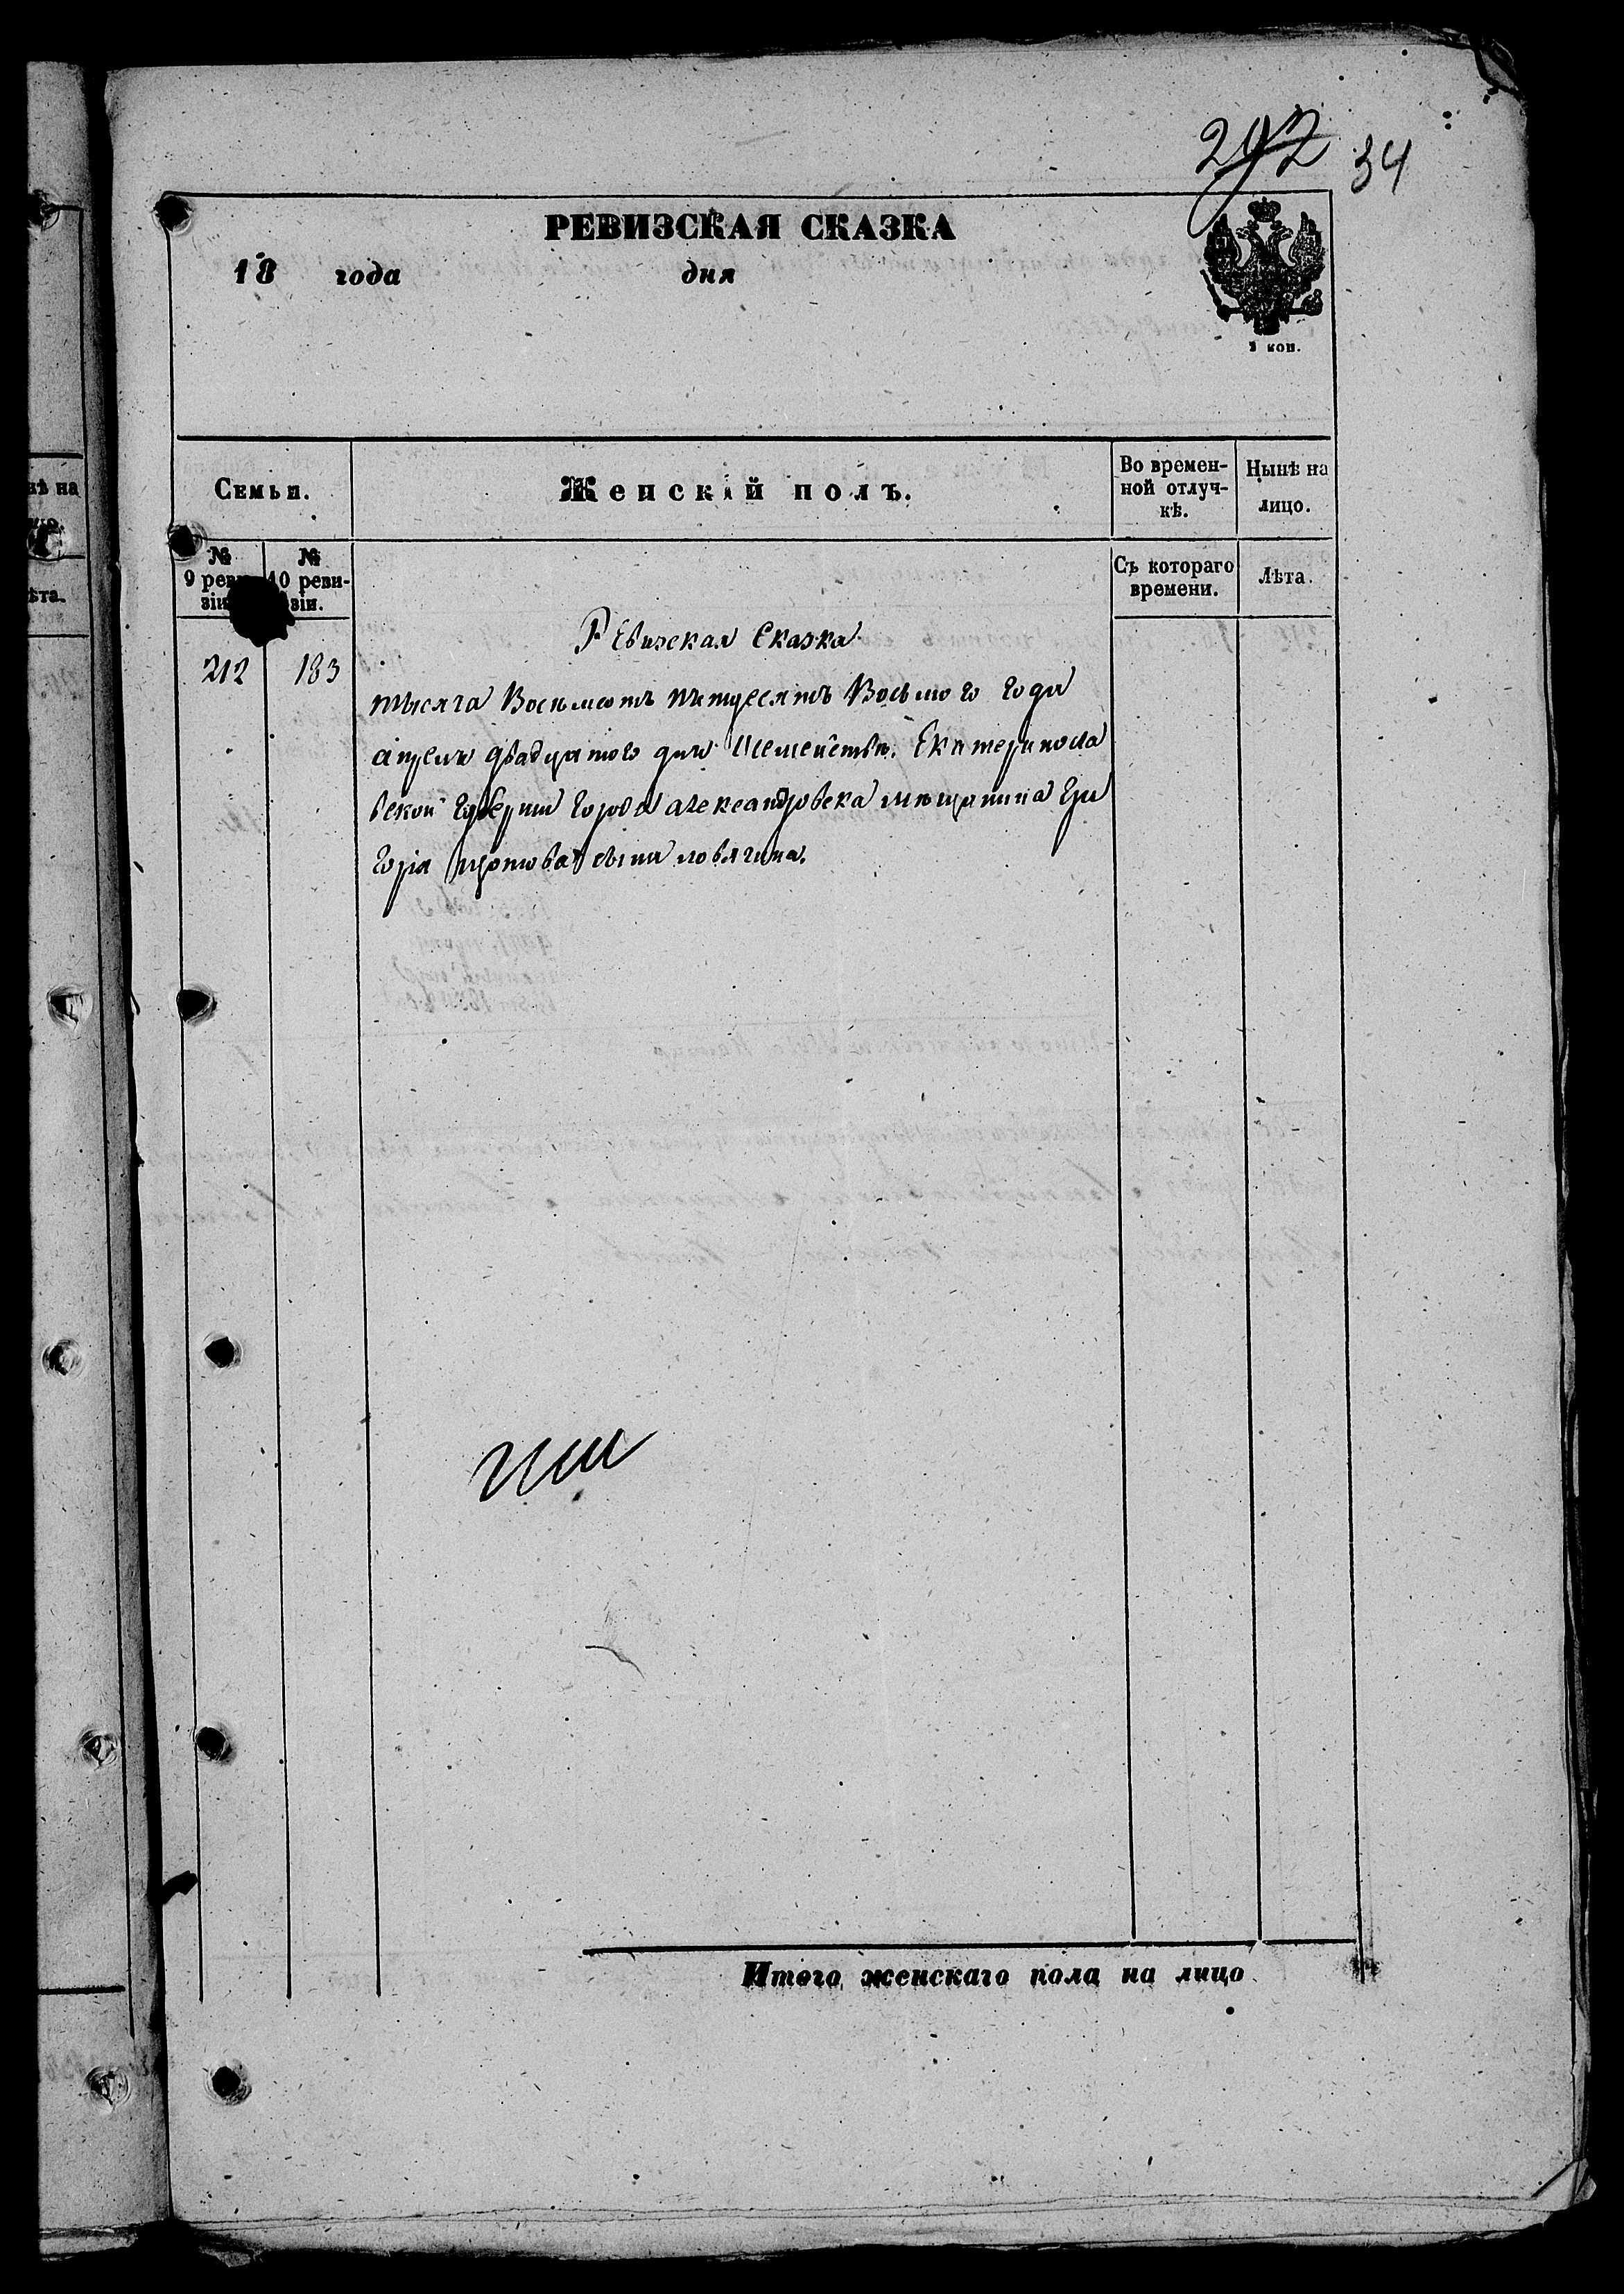 292 34
РЕВИЗСКАЯ СКАЗКА
18 года дня
1 коп.
Семьи. Женскій полъ. Во времен-ной отлуч-кѣ. Нынѣ на лицо.
№ 9 реви-зіи. № 10 реви-зіи. Съ котораго времени. Лѣта.
Ревизская Сказка
212 183
тысяча Восемьсотъ пятдесятъ Восьмого года
апреля двадцатого дня Екатеринosла
вской Губернии города александровска мещанина Гри
горія сына
Итого женскаго пола на лицо